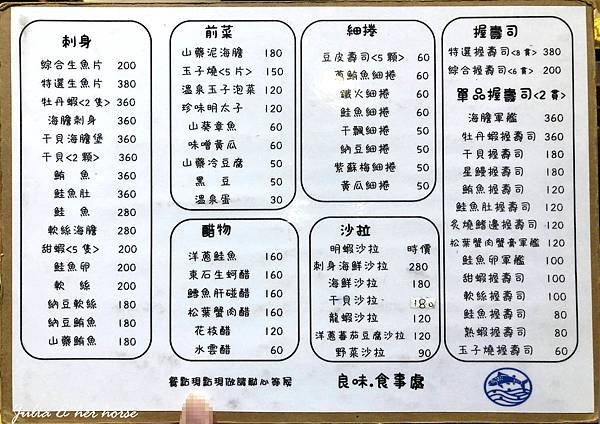 刺身
綜合生魚片 200
特選生魚片 360
牡丹蝦<2隻> 360
海膽刺身 360
干貝海膽堡 360
干貝<2顆> 360
鮪魚 360
鮭魚肚 360
鮭魚 280
軟絲海膽 280
甜蝦<5隻> 200
鮭魚卵 200
軟絲 200
納豆軟絲 180
納豆鮪魚 180
山藥鮪魚 180
前菜
山藥泥海膽 180
玉子燒<5片> 150
溫泉玉子泡菜 120
珍味明太子 120
山葵章魚 60
味噌黃瓜 60
山藥冷豆腐 50
黑豆 50
溫泉蛋 30
醋物
洋蔥鮭魚 160
東石生蚵醋 160
鱈魚肝碰醋 160
松葉蟹肉醋 160
花枝醋 120
水雲醋 60
細捲
豆皮壽司<5顆> 60
蔥鮪魚細捲 60
鐵火細捲 60
鮭魚細捲 60
干瓢細捲 60
納豆細捲 60
紫蘇梅細捲 60
黃瓜細捲 60
沙拉
明蝦沙拉 時價
刺身海鮮沙拉 280
海鮮沙拉 180
干貝沙拉 180
龍蝦沙拉 120
洋蔥蕃茄豆腐沙拉 120
野菜沙拉 90
握壽司
特選握壽司<8貫> 380
綜合握壽司<6貫> 200
單品握壽司<2貫>
海膽軍艦 360
牡丹蝦握壽司 360
干貝握壽司 180
星鰻握壽司 180
鮪魚握壽司 120
鮭魚肚握壽司 120
炙燒鰭邊握壽司 120
松葉蟹肉蟹膏軍艦 120
鮭魚卵軍艦 100
甜蝦握壽司 100
軟絲握壽司 100
鮭魚握壽司 80
熟蝦握壽司 80
玉子燒握壽司 60
餐點現點現做請耐心等候
良味.食事處
Julia & her horse